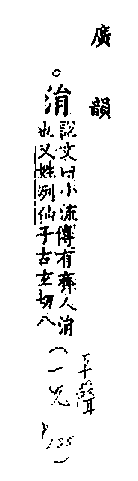 廣韻
○涓
說文曰小流
也又姓列仙
傳有齊人涓
子古玄切八
平聲
(一先
P135)